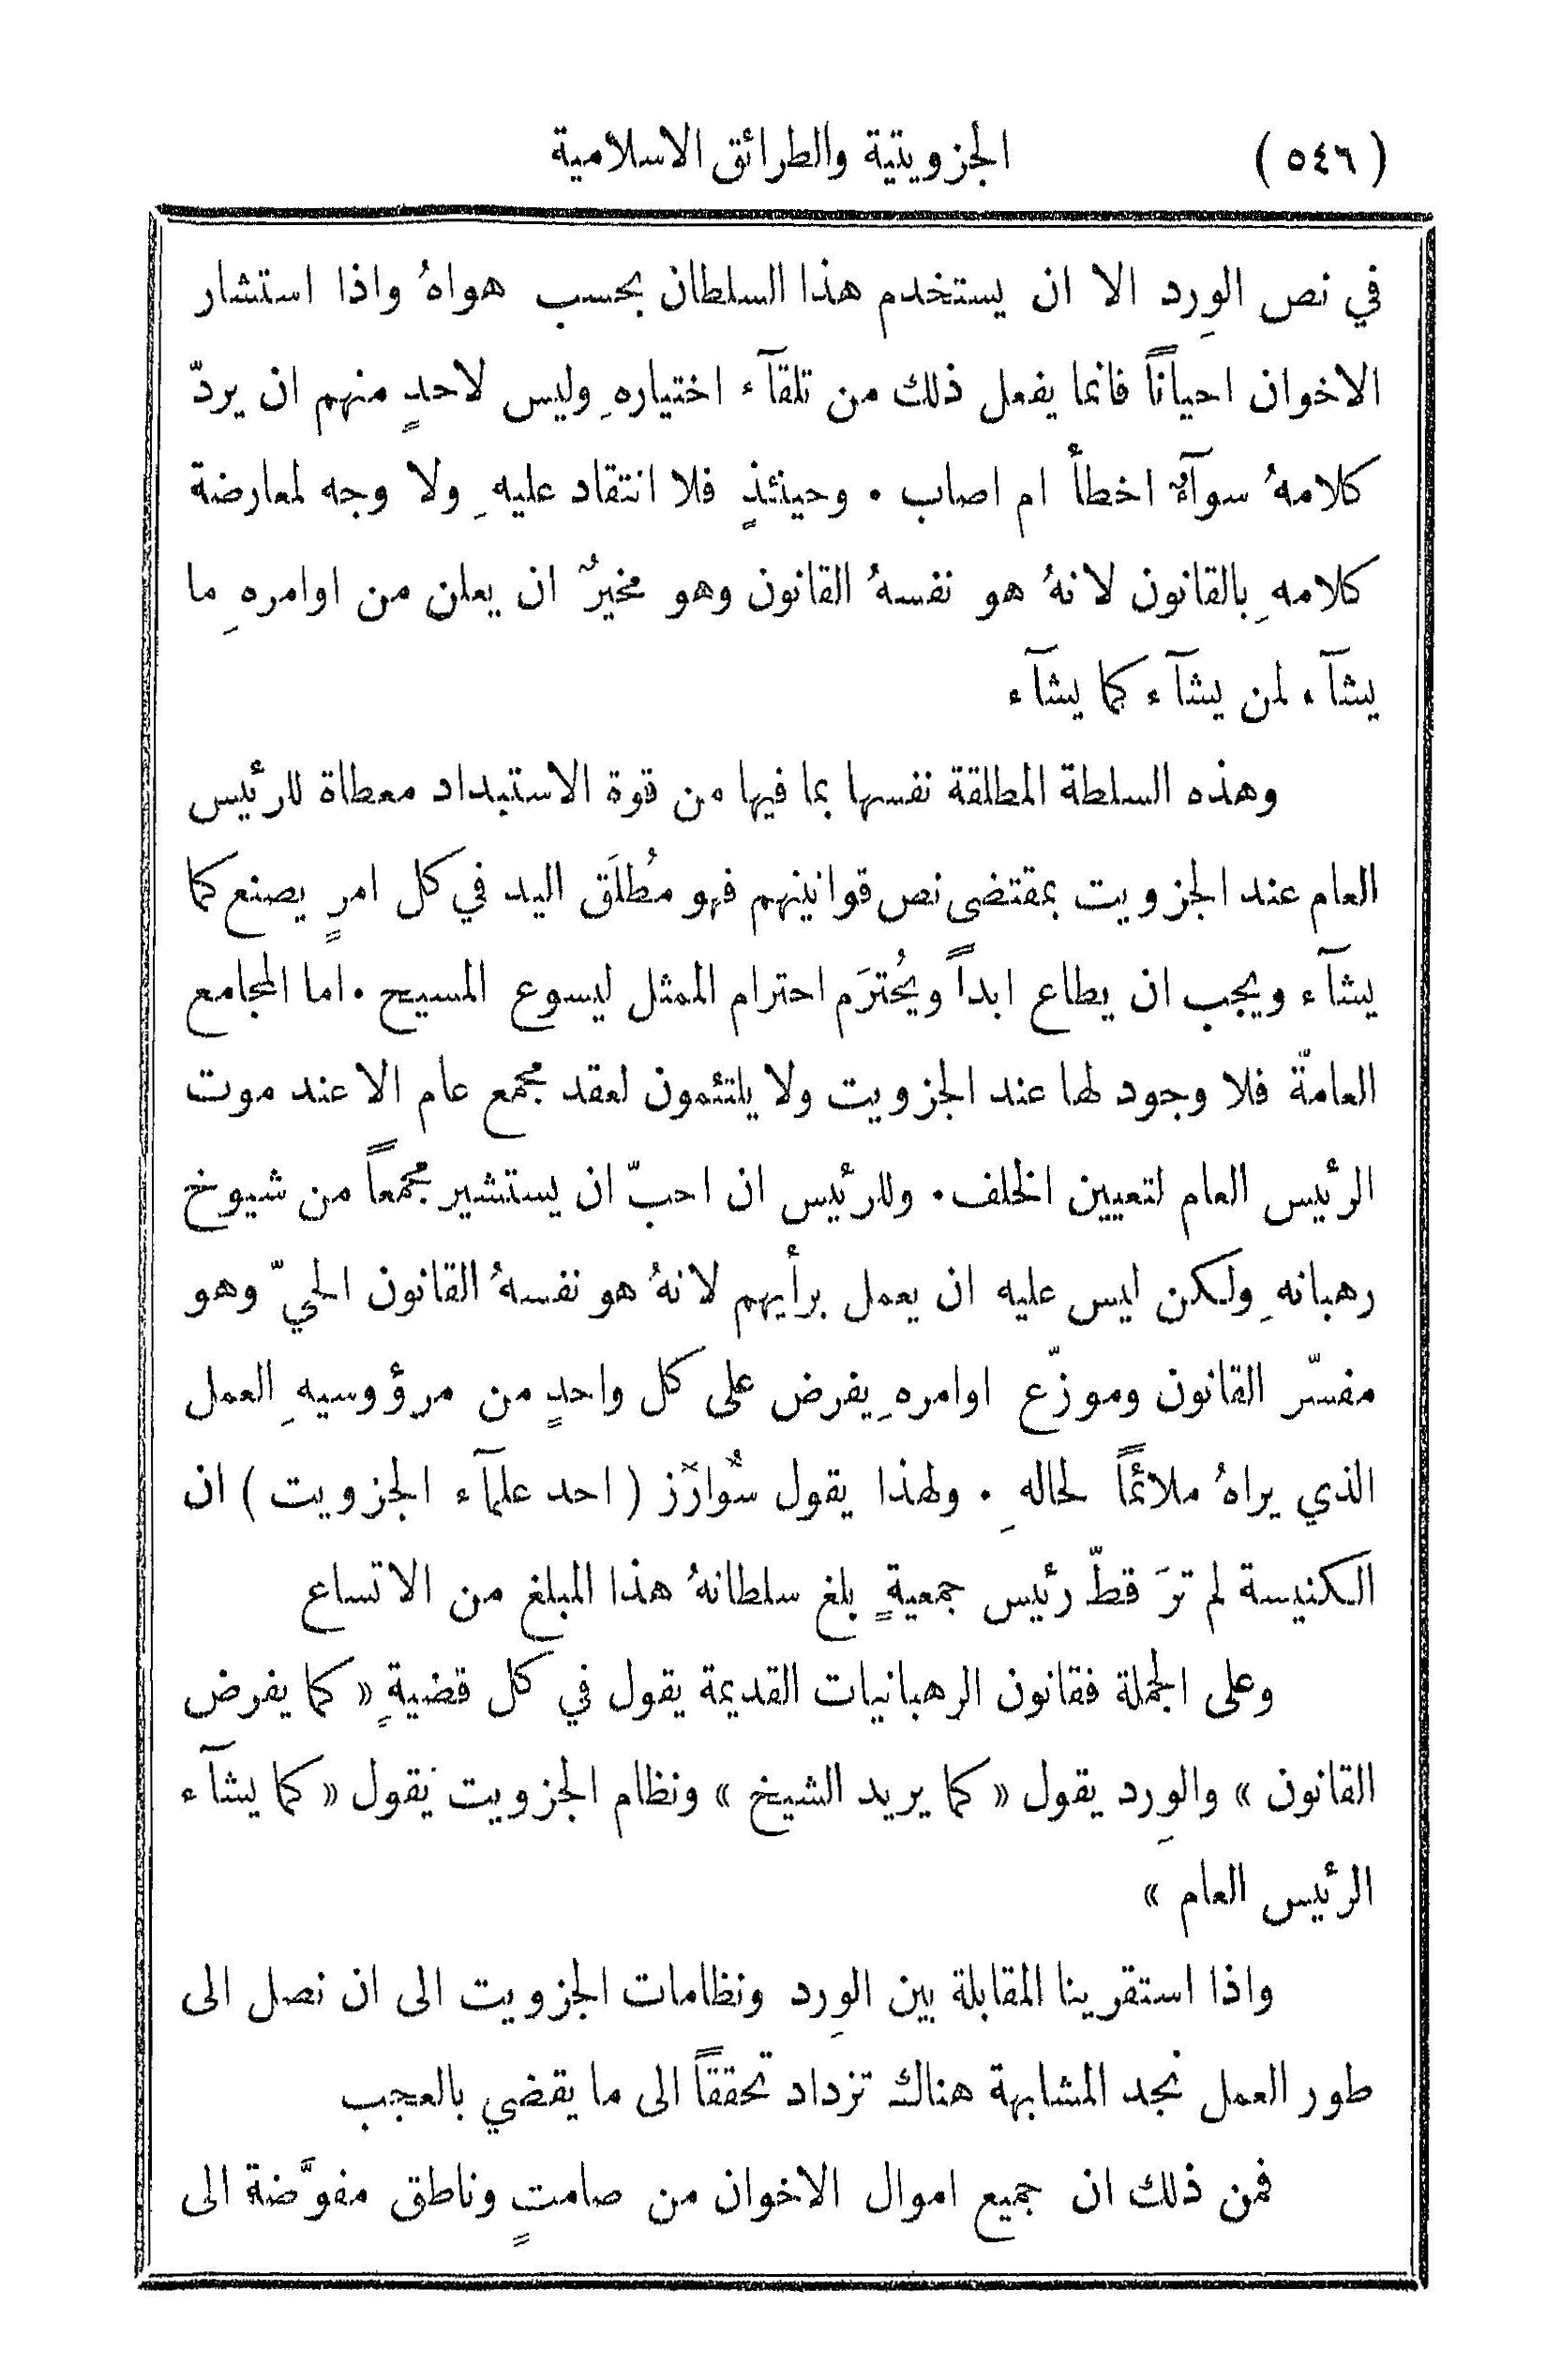 (٥٤٦) الجزويتية والطرائق الاسلامية
في نص الوِرد الا ان يستخدم هذا السلطان بحسب هواهُ واذا استشار
الاخوان احياناً فانما يفعل ذلك من تلقآء اختيارهِ وليس لاحدٍ منهم ان يردّ
كلامهُ سوآءٌ اخطأ ام اصاب . وحينئذٍ فلا انتقاد عليهِ ولا وجه لمعارضة
كلامهِ بالقانون لانهُ هو نفسهُ القانون وهو مخيرٌ ان يعلن من اوامرهِ ما
يشآء لمن يشآء كما يشآء
وهذه السلطة المطلقة نفسها بما فيها من قوة الاستبداد معطاة للرئيس
العام عند الجزويت بمقتضى نص قوانينهم فهو مُطلَق اليد في كل امرٍ يصنع كما
يشآء ويجب ان يطاع ابداً ويُحترَم احترام الممثل ليسوع المسيح . اما المجامع
العامّة فلا وجود لها عند الجزويت ولا يلتئمون لعقد مجمع عام الا عند موت
الرئيس العام لتعيين الخلف . وللرئيس ان احبّ ان يستشير مجمعاً من شيوخ
رهبانهِ ولكن ليس عليه ان يعمل برأيهم لانهُ هو نفسهُ القانون الحيّ وهو
مفسّر القانون وموزّع اوامرهِ يفرض على كل واحدٍ من مرؤوسيهِ العمل
الذي يراهُ ملائماً لحالهِ . ولهذا يقول سُوارَز ( احد علمآء الجزويت ) ان
الكنيسة لم ترَ قطّ رئيس جمعيةٍ بلغ سلطانهُ هذا المبلغ من الاتساع
وعلى الجملة فقانون الرهبانيات القديمة يقول في كل قضيةٍ « كما يفرض
القانون » والوِرد يقول « كما يريد الشيخ » ونظام الجزويت يقول « كما يشآء
الرئيس العام »
واذا استقرينا المقابلة بين الوِرد ونظامات الجزويت الى ان نصل الى
طور العمل نجد المشابهة هناك تزداد تحققاً الى ما يقضي بالعجب
فمن ذلك ان جميع اموال الاخوان من صامتٍ وناطق مفوَّضة الى